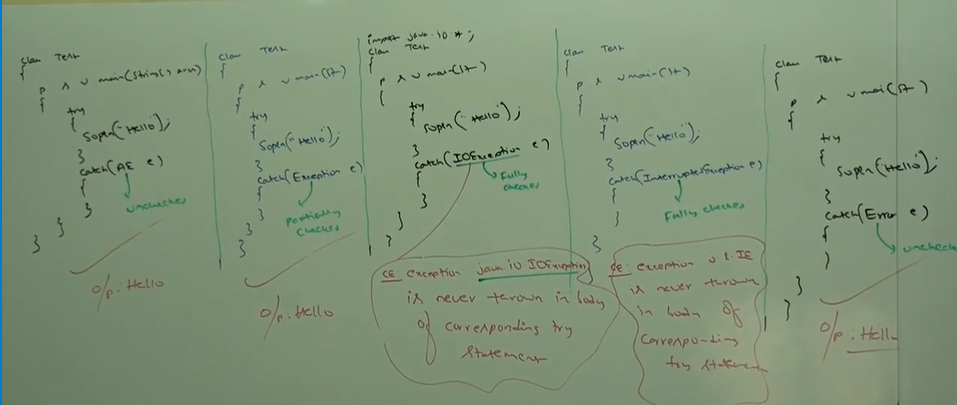 class Test
{
p s v main(String[] args)
{
try
{
Sopln("Hello");
}
catch(AE e)
{
unchecked
}
}
}
O/p: Hello
class Test
{
p s v main(St
{
try
{
Sopln("Hello");
}
catch(Exception e)
{
Partially
checked
}
}
}
O/p: Hello
import java.io.*;
class Test
{
p s v main(St )
{
try
{
Sopln("Hello");
}
catch(IOException e)
{
Fully
checked
}
}
}
CE: exception java.io.IOException
is never thrown in body
of corresponding try
statement
class Test
{
p s v main(St )
{
try
{
Sopln("Hello");
}
catch(InterruptedException e)
{
Fully checked
}
}
CE: exception j.l.IE
is never thrown
in body of
corresponding
try statement
class Test
{
p s v main(St )
{
try
{
Sopln("Hello");
}
catch(Error e)
{
unchecked
}
}
}
O/p: Hello